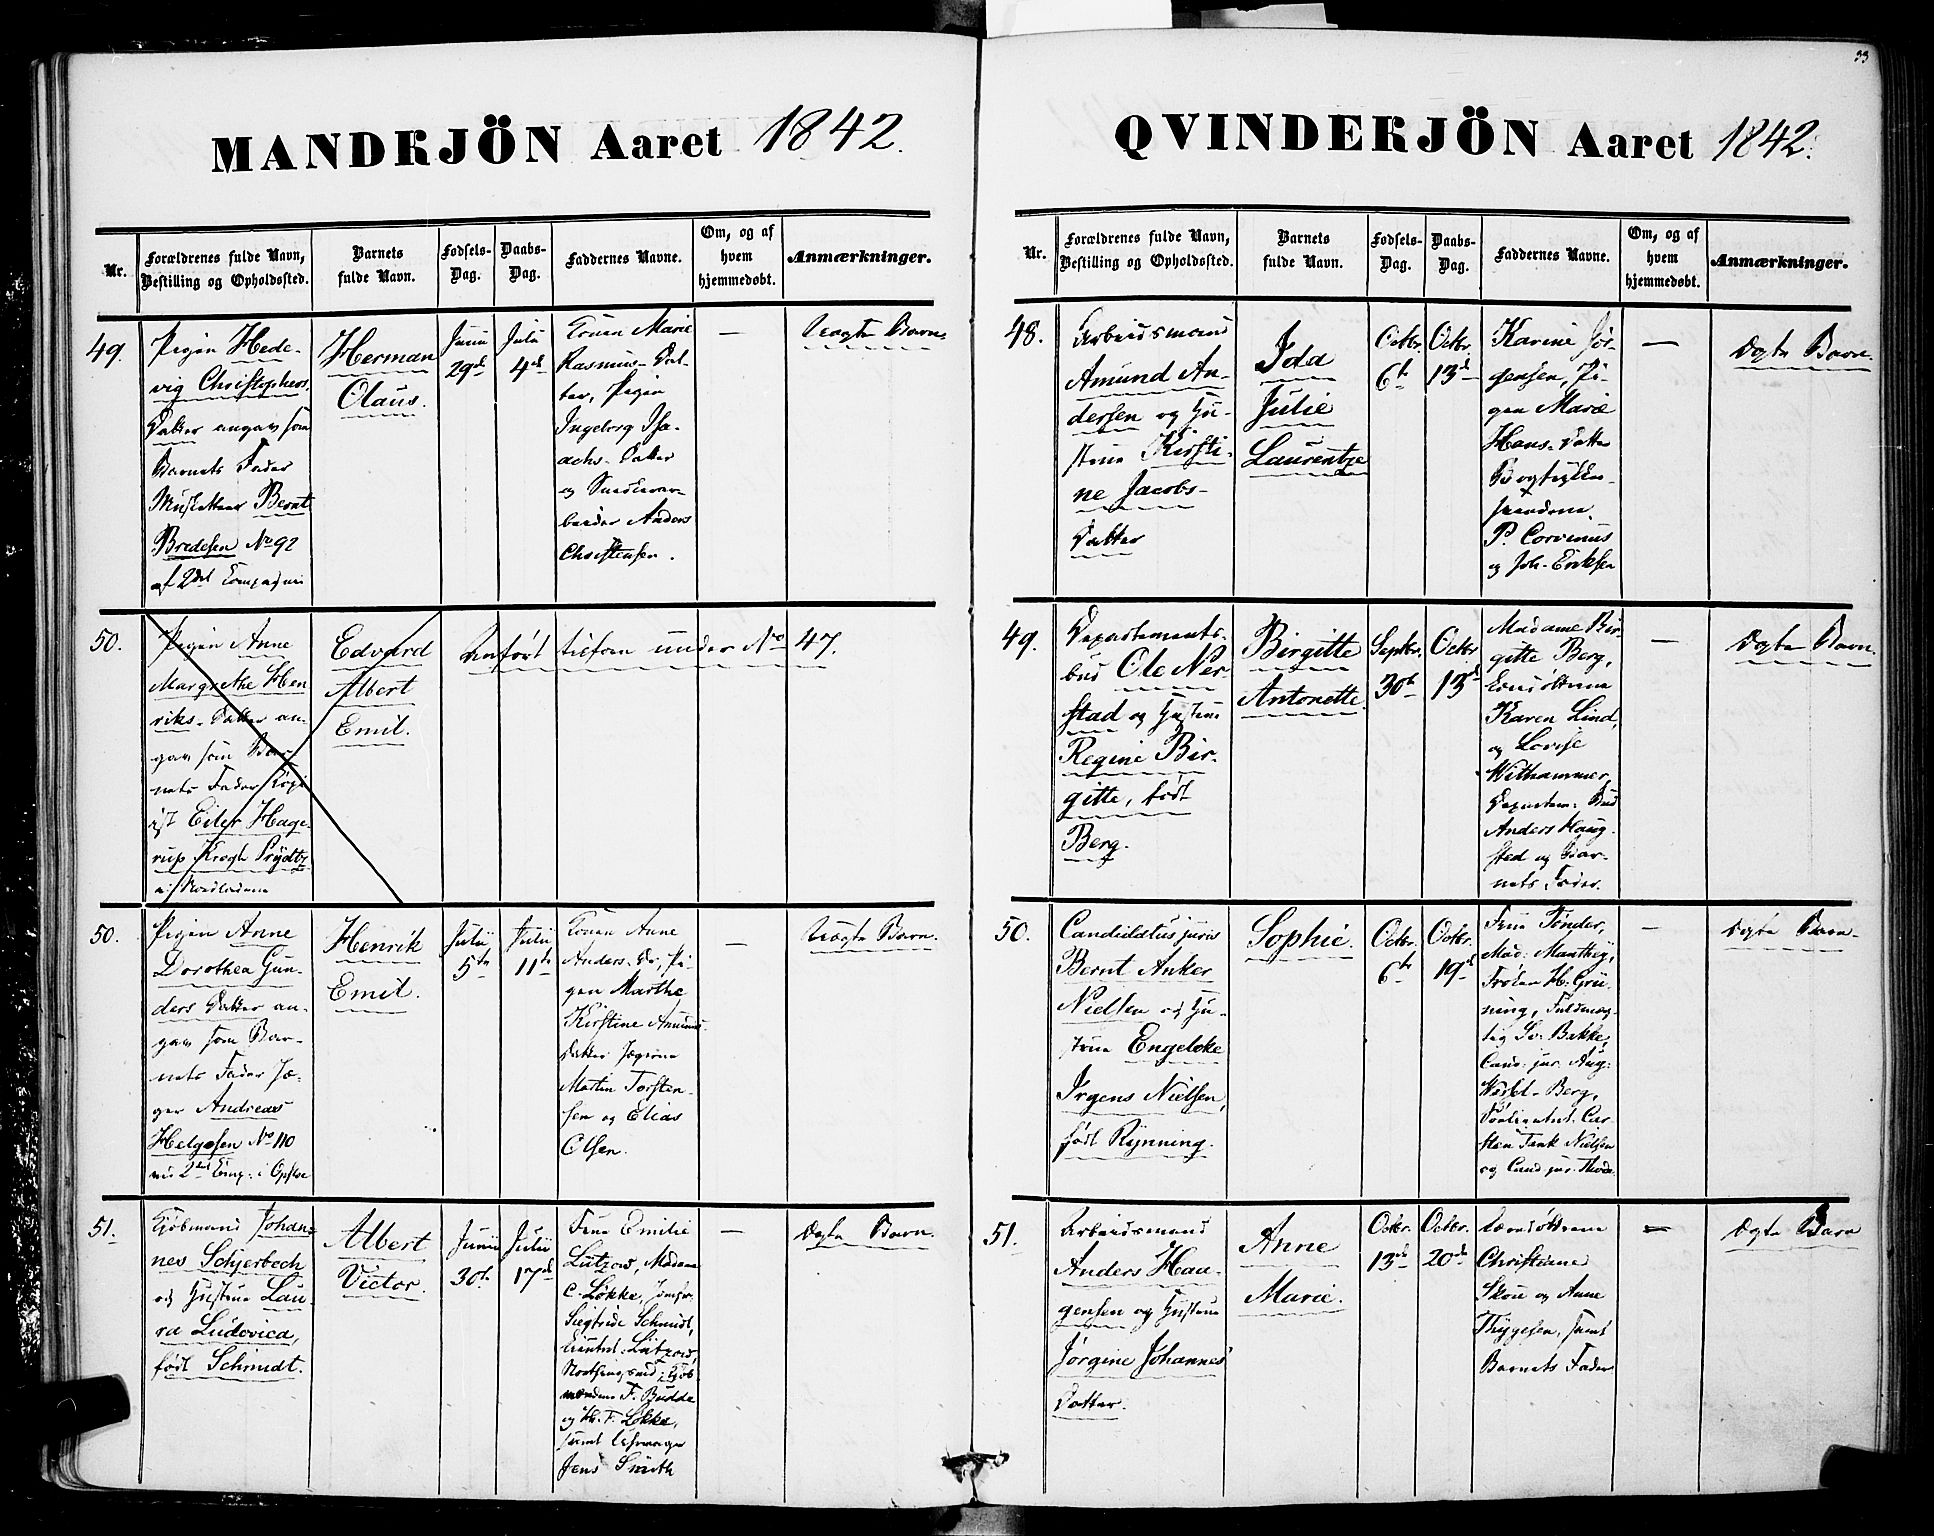 33
MANDKJÖN Aaret 1842.
Nr.
Forældrenes fulde Navn,
Bestilling og Opholdssted.
Barnets
fulde Navn.
Fødsels-
Dag.
Daabs-
Dag.
Faddernes Navne.
Om, og af
hvem
hjemmedøbt.
Anmærkninger.
49.
Pigen Hede-
vig Christophers
Datter angav som
Barnets Fader
Musketeer Bernt
Bredesen No 92
af 2det Compagnie
Herman
Olaus.
Junii
29de
Julii
4de
Konen Marie
Rasmus-Dat-
ter, Pigen
Ingeborg Isa-
achs-Datter
og
Anders
Christensen.
—
Uægte Barn.
50.
Pigen Anne
Margrethe Hen
riks-Datter an-
gav som Bar
nets Fader Kopi
ist Eiler Hage-
rup Krogh Prydtz
i Nordlandene
Edvard
Albert
Emil.
Anført tilforn under No 47.
50.
Pigen Anne
Dorothea Gun-
ders Datter an-
gav som Bar-
nets Fader Jæ-
ger Andreas
Helgesen No 110
ved 2det Comp: i Opsloe
Henrik
Emil.
Julii
5te
Julii
11te
Konen Anne
Anders-D., Pi-
gen Marthe
Kirstine Amunds
Datter Jægerne
Martin Torsten-
sen og Elias
Olsen.
—
Uægte Barn.
51.
Kjøbmand Johan-
nes Schjerbech
og Hustrue Lau-
ra Ludovica,
født Schmidt.
Albert
Victor.
Junii
30te
Julii
17de
Frue Emilie
Lützow, Madame
C. Løkke, Jomfr.
Siegtride Schmidt,
Lieutnt: Lützow,
Kjøb-
mændene F. Budde
og Hr. F. Løkke,
samt
Jens Smith
—
Ægte Barn.
QVINDEKJÖN Aaret 1842.
Nr.
Forældrenes fulde Navn,
Bestilling og Opholdssted.
Barnets
fulde Navn.
Fødsels-
Dag.
Daabs-
Dag.
Faddernes Navne.
Om, og af
hvem
hjemmedøbt.
Anmærkninger.
48.
Arbeidsmand
Amund An-
dersen og Hu-
strue Kirsti-
ne Jacobs-
Datter
Ida
Julie
Laurentze
Octbr.
6te
Octbr.
13de
Karine Jör-
gensen, Pi-
gen Marie
Hans-Datter
Bogtrykker-
svendene
P. Corvinus
og Joh. Eriksen
—
Ægte Barn.
49.
Departements-
bud Ole Ner-
stad og Hustrue
Regine Bir-
gitte, født
Berg.
Birgitte
Antonette.
Septbr.
30te
Octbr.
13de
Madame Bir-
gitte Berg,
Karen Lind,
og Lovise
Withammer,
Departem: Bud
Anders Haug-
sted og Bar-
nets Fader.
—
Ægte Barn.
50.
Candidatus juris
Bernt Anker
Nielsen og Hu-
strue Engelcke
Irgens Nielsen,
født Rynning.
Sophie.
Octbr.
6te
Octbr.
19de
Frue Tönder,
Mad: Manthey,
Frøken H. Grü-
ning, Fuldmæg-
tig Sv. Bakke,
Cand: jur. Aug:
Wessel-Berg,
Lieutnt. Car-
sten Tank Nielsen
og Cand. jur.
—
Ægte Barn.
51.
Arbeidsmand
Anders Hau-
gensen og Hustrue
Jörgine Johannes
Datter.
Anne
Marie.
Octbr.
13de
Octbr.
20de
Christiane
Skou og Anne
Thygesen, samt
Barnets Fader
—
Ægte Barn